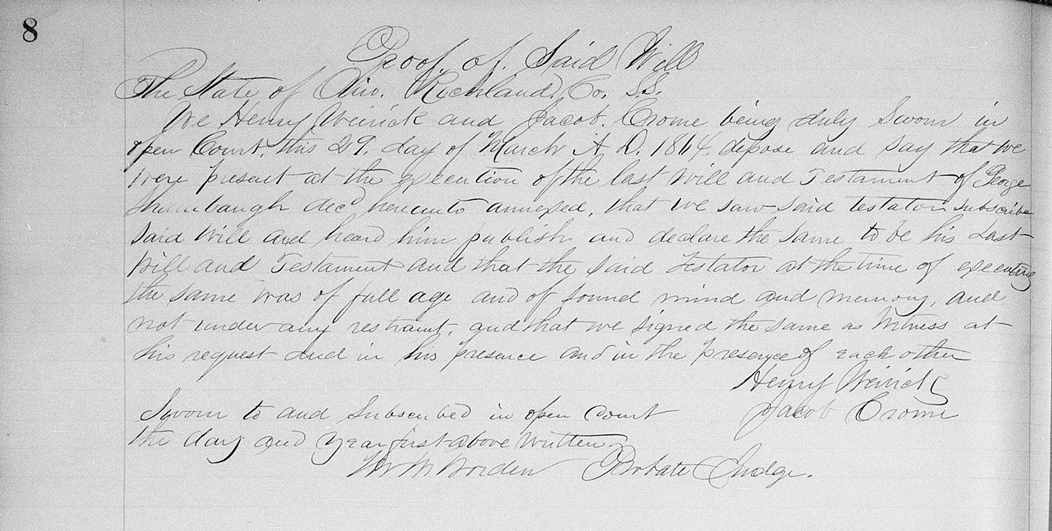 8
Proof of Said Will
The State of Ohio. Richland. Co. SS.
We Henry Weirick and Jacob. Crome being duly Sworn in
open Court. this 29. day of March A. D. 1864. depose and say that we
were present at the execution of the last Will and Testament of George
decd hereunto annexed, that we saw said testator subscribe
said Will and heard him publish and declare the same to be his Last
Will and Testament and that the said Testator at the time of executing
the same was of full age and of sound mind and memory, and
not under any restraint, and that we signed the same as Witness at
his request and in his presence and in the presence of each other
Henry Weirick
Sworn to and Subscribed in open Court
Jacob Crome
the day and year first above written
Worden Probate Judge.